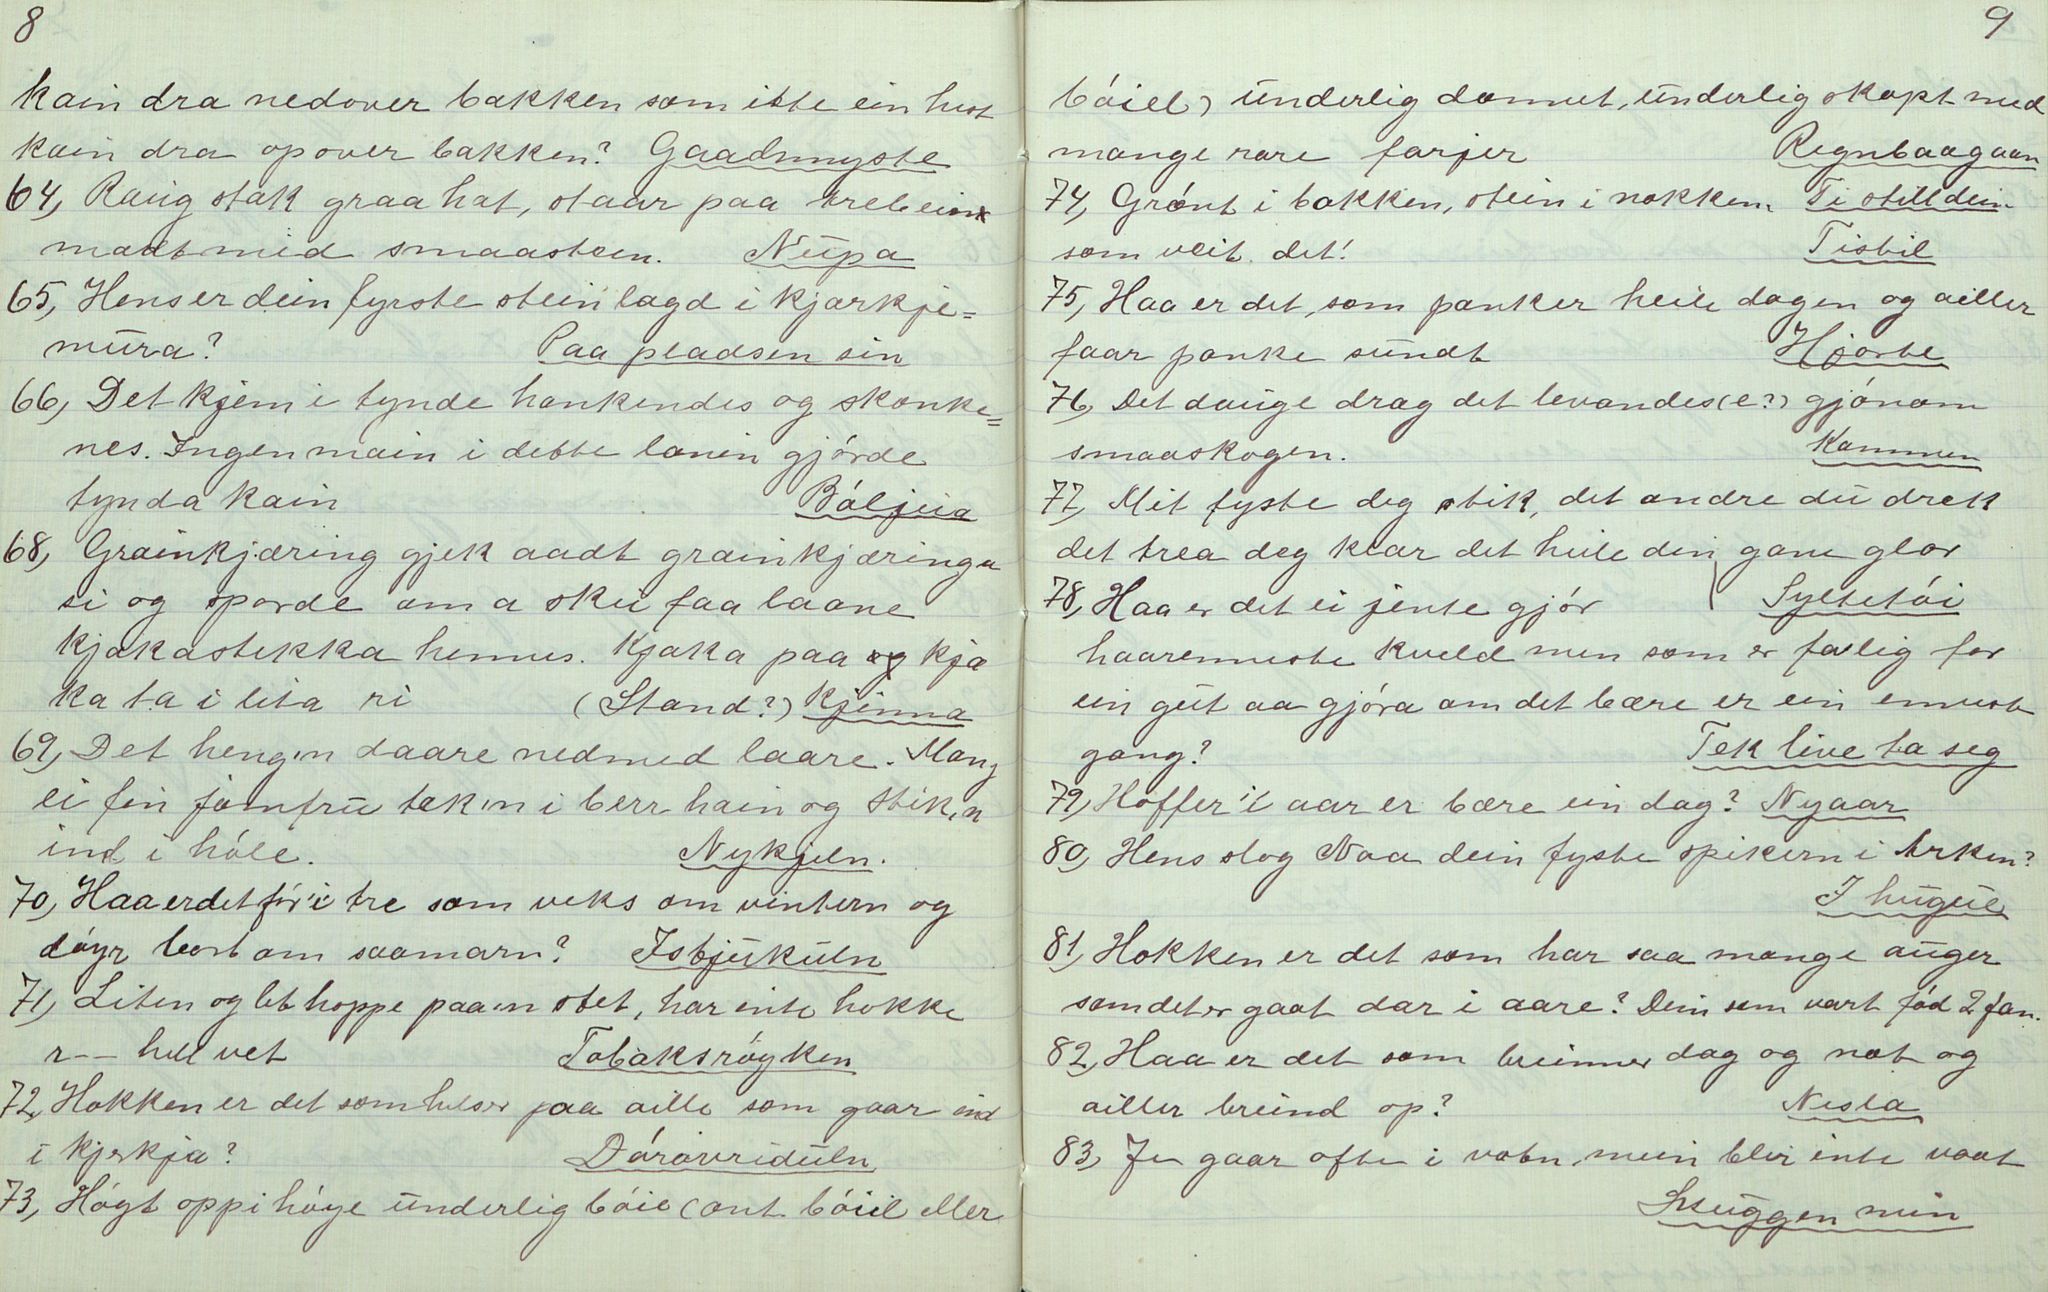 8
kain dra nedover bakken som itte ein hest
kain dra opover bakken? Gaadnnyste
64, Raug stak graa hat, staar paa trebein
madt med smaasteen. Nŭpa
65, Hens er dein fyrste stein lagd i kjærkje=
mŭra?
Paa pladsen sin
66, Det kjem i tynde hankendes og skanke=
nes. Ingen main i dette lanin gjórde
tynda kain
Bóljua
68, Grainkjæring gjek aadt grainkjæringa
si og sporde om a sku faa laane
kjakastikka hennes. Kjaka paa og kja
ka ta i lita ri (Stand?) Kjinna
69, Det heng'n daare ned med laare. Mang
ei fin jomfrŭ tek'n i berr hain og stik'n
ind i hóle.
Nykjeln.
70, Haa er det fór i tre som veks om vintern og
dóyr bort om saamarn? Isbjŭkŭln
71, Liten og let hoppe paa'n stet, har inte hokke
r-- hell vet
Tobaksróyken
72, Hokken er det som helser paa aille som gaar ind
i kjerkja?
Dóravridŭln
73, Hógt opp i hóge ŭnderlig bóie (ant. bóiel eller
9
bóiel) ŭnderlig dannet, ŭnderlig skapt med
mange rare farjer
Regnbaagaan
74, Grónt i bakken, stein i nakken. Ti still dein
som veit det!
Tistil
75, Haa er det, som panker heile dagen og ailler
faar panke sŭndt
Hjarte
76, Det daŭge drag det levandes (e?) gjónom
smaaskogen.
Kammen
77, Mit fyste deg stik, det andre dŭ drek
det trea deg klar det heile dein gane glar
Syltetói
78, Haa er det ei jente gjór
haarenneste kveld men som er falig for
ein gŭt aa gjóra om det bære er ein eneste
gang?
Tek live ta seg
79, Hoffer i aar er bære ein dag? Nyaar
80, Hens slog Noa dein fyste spikern i Arken?
I hŭgŭe
81, Hokken er det som har saa mange aŭger
som det er gaat dar i aare? Dein som vart fód 2 jan.
82, Haa er det som breinner dag og nat og
ailler breind op?
Nesla
83, Je gaar ofte i vatn, mein blir inte vaat
Skŭggen min